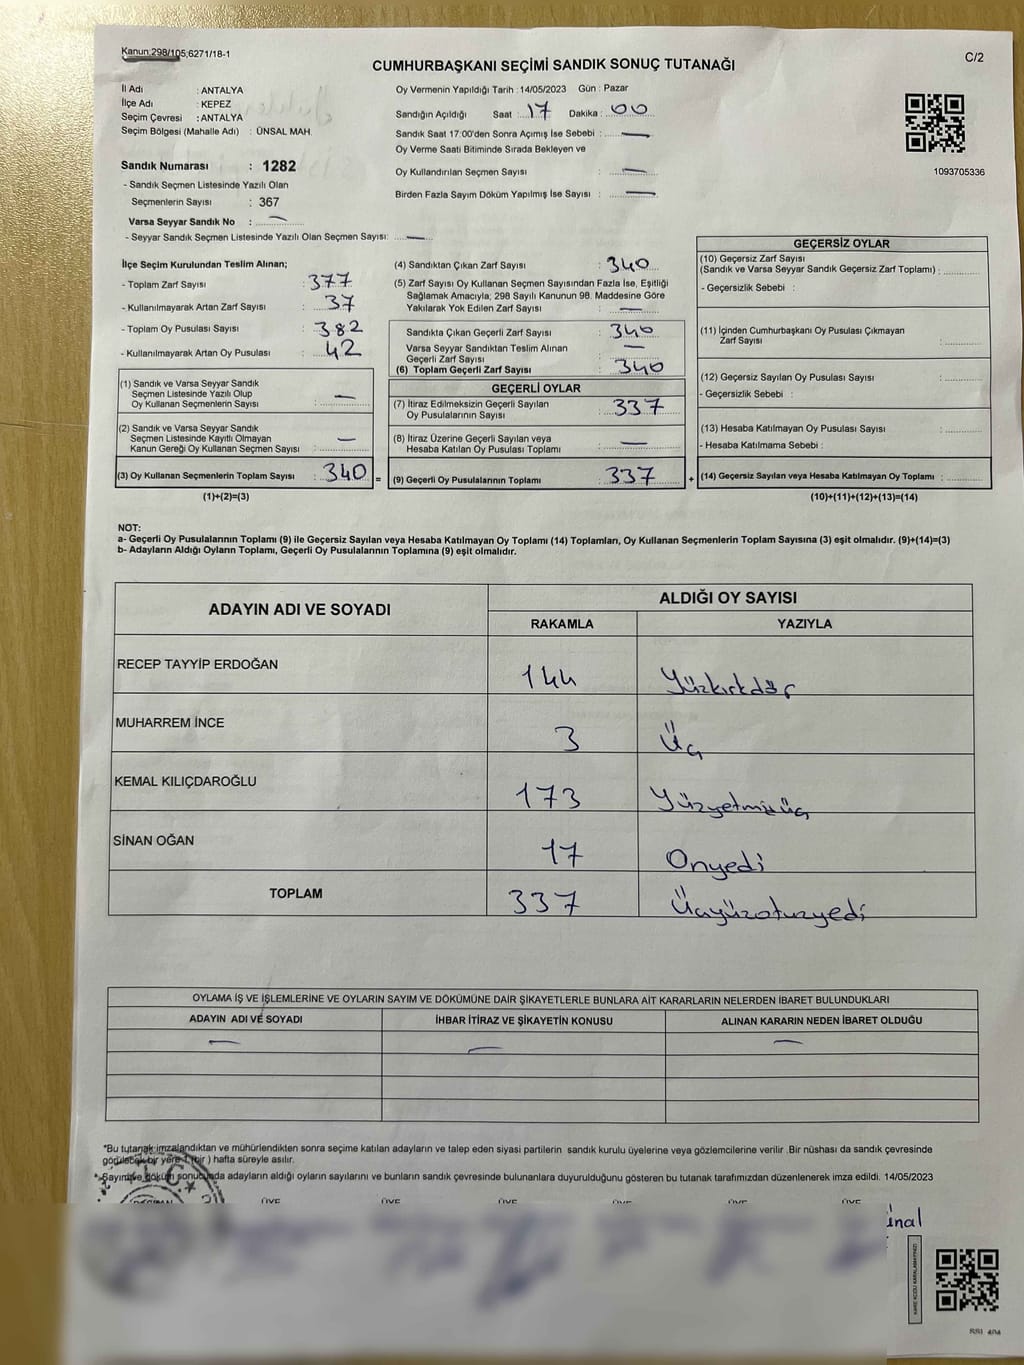 Kanun:298/105;6271/18-1
C/2
CUMHURBAŞKANI SEÇİMİ SANDIK SONUÇ TUTANAĞI
İl Adı : ANTALYA
İlçe Adı : KEPEZ
Seçim Çevresi : ANTALYA
Seçim Bölgesi (Mahalle Adı) : ÜNSAL MAH.
Sandık Numarası : 1282
- Sandık Seçmen Listesinde Yazılı Olan
Seçmenlerin Sayısı : 367
Varsa Seyyar Sandık No :
- Seyyar Sandık Seçmen Listesinde Yazılı Olan Seçmen Sayısı:
Oy Vermenin Yapıldığı Tarih : 14/05/2023 Gün : Pazar
Sandığın Açıldığı Saat : 17 Dakika : 00
Sandık Saat 17:00'den Sonra Açımış İse Sebebi :
Oy Verme Saati Bitiminde Sırada Bekleyen ve
Oy Kullandırılan Seçmen Sayısı :
Birden Fazla Sayım Döküm Yapılmış İse Sayısı :
1093705336
İlçe Seçim Kurulundan Teslim Alınan;
- Toplam Zarf Sayısı : 377
- Kullanılmayarak Artan Zarf Sayısı : 37
- Toplam Oy Pusulası Sayısı : 382
- Kullanılmayarak Artan Oy Pusulası : 42
(1) Sandık ve Varsa Seyyar Sandık
Seçmen Listesinde Yazılı Olup
Oy Kullanan Seçmenlerin Sayısı :
(2) Sandık ve Varsa Seyyar Sandık
Seçmen Listesinde Kayıtlı Olmayan
Kanun Gereği Oy Kullanan Seçmen Sayısı :
(3) Oy Kullanan Seçmenlerin Toplam Sayısı : 340 =
(1)+(2)=(3)
(4) Sandıktan Çıkan Zarf Sayısı : 340
(5) Zarf Sayısı Oy Kullanan Seçmen Sayısından Fazla İse, Eşitliği
Sağlamak Amacıyla; 298 Sayılı Kanunun 98. Maddesine Göre
Yakılarak Yok Edilen Zarf Sayısı :
Sandıkta Çıkan Geçerli Zarf Sayısı : 340
Varsa Seyyar Sandıktan Teslim Alınan
Geçerli Zarf Sayısı :
(6) Toplam Geçerli Zarf Sayısı : 340
GEÇERLİ OYLAR
(7) İtiraz Edilmeksizin Geçerli Sayılan
Oy Pusulalarının Sayısı : 337
(8) İtiraz Üzerine Geçerli Sayılan veya
Hesaba Katılan Oy Pusulası Toplamı :
(9) Geçerli Oy Pusulalarının Toplamı : 337 +
GEÇERSİZ OYLAR
(10) Geçersiz Zarf Sayısı
(Sandık ve Varsa Seyyar Sandık Geçersiz Zarf Toplamı) :
- Geçersizlik Sebebi :
(11) İçinden Cumhurbaşkanı Oy Pusulası Çıkmayan
Zarf Sayısı :
(12) Geçersiz Sayılan Oy Pusulası Sayısı :
- Geçersizlik Sebebi :
(13) Hesaba Katılmayan Oy Pusulası Sayısı :
- Hesaba Katılmama Sebebi :
(14) Geçersiz Sayılan veya Hesaba Katılmayan Oy Toplamı :
(10)+(11)+(12)+(13)=(14)
NOT:
a- Geçerli Oy Pusulalarının Toplamı (9) ile Geçersiz Sayılan veya Hesaba Katılmayan Oy Toplamı (14) Toplamları, Oy Kullanan Seçmenlerin Toplam Sayısına (3) eşit olmalıdır. (9)+(14)=(3)
b- Adayların Aldığı Oyların Toplamı, Geçerli Oy Pusulalarının Toplamına (9) eşit olmalıdır.
ADAYIN ADI VE SOYADI
ALDIĞI OY SAYISI
RAKAMLA YAZIYLA
RECEP TAYYİP ERDOĞAN 144 Yüzkırkdör
MUHARREM İNCE 3 Üç
KEMAL KILIÇDAROĞLU 173 Yüzyetmişüç
SİNAN OĞAN 17 Onyedi
TOPLAM 337 Üçyüzotuzyedi
OYLAMA İŞ VE İŞLEMLERİNE VE OYLARIN SAYIM VE DÖKÜMÜNE DAİR ŞİKAYETLERLE BUNLARA AİT KARARLARIN NELERDEN İBARET BULUNDUKLARI
ADAYIN ADI VE SOYADI İHBAR İTİRAZ VE ŞİKAYETİN KONUSU ALINAN KARARIN NEDEN İBARET OLDUĞU
*Bu tutanak imzalandıktan ve mühürlendikten sonra seçime katılan adayların ve talep eden siyasi partilerin sandık kurulu üyelerine veya gözlemcilerine verilir .Bir nüshası da sandık çevresinde
görülecek bir yere 1 (bir) hafta süreyle asılır.
* Sayım ve döküm sonucunda adayların aldığı oyların sayılarını ve bunların sandık çevresinde bulunanlara duyurulduğunu gösteren bu tutanak tarafımızdan düzenlenerek imza edildi. 14/05/2023
ÜYE ÜYE ÜYE ÜYE ÜYE ÜYE